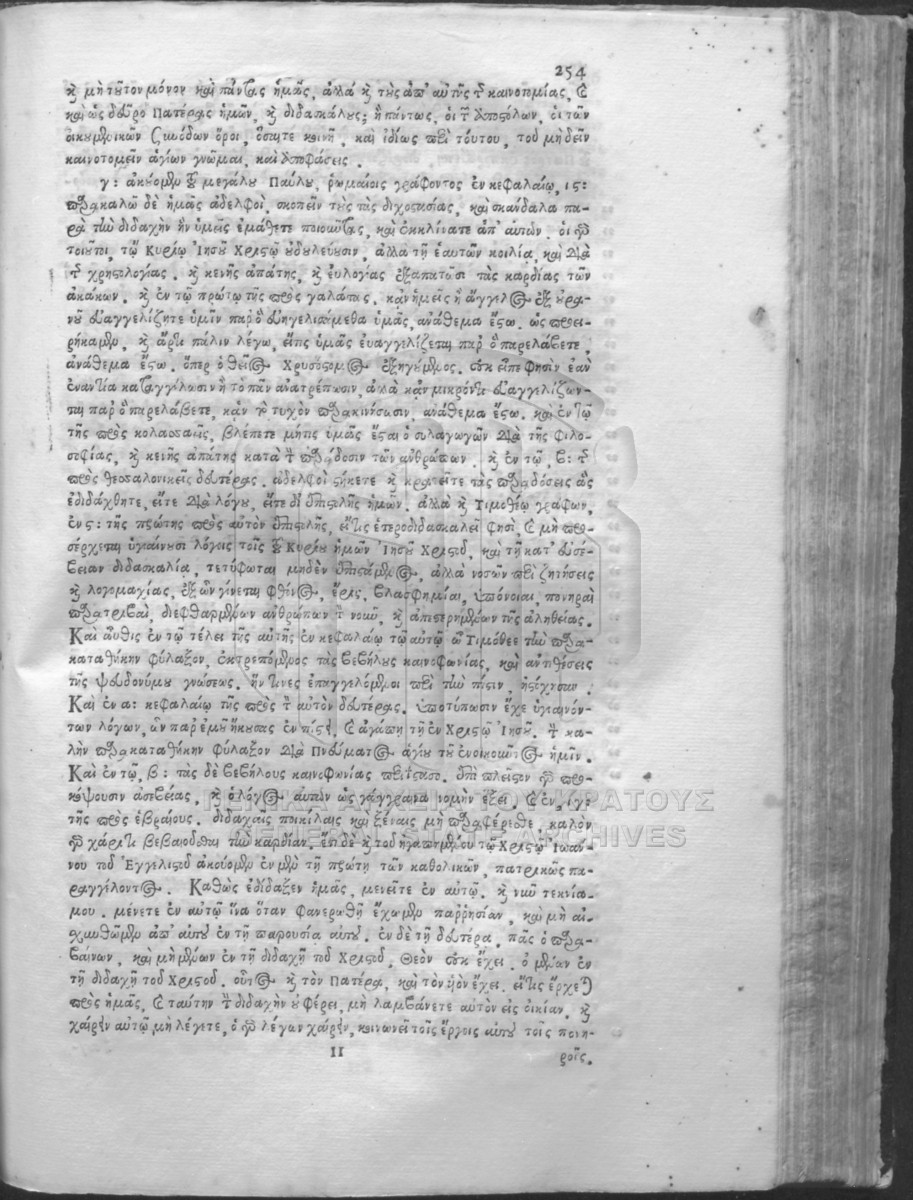 254
κỳ μὴ τοῦτον μόνον καὶ πάντας ἡμᾶς, ἀλλὰ κỳ τοὺς ἀπ' αὐτῆς τ καινοτομίας, ϗ
καὶ ὡς δεῦρο Πατέρας ἡμῶν, κỳ διδασκάλους; ἢ πάντως, οἱ τ ἀποστόλων, οἱ τῶν
οἰκουμενικῶν συνόδων ὅροι, κοινῇ, καὶ ἰδίως περὶ τούτου, τοῦ μὴ δεῖν
καινοτομεῖν ἁγίων γνῶμαι, καὶ ἀποφάσεις.
γ: ἀκούομεν τοῦ μεγάλου Παύλου, ῥωμαίοις γράφοντος ἐν κεφαλαίῳ, ις:
παρακαλῶ δὲ ἡμᾶς ἀδελφοὶ, σκοπεῖν τοὺς τὰς διχοστασίας, καὶ σκάνδαλα πα-
ρὰ τὴν διδαχὴν ἣν ὑμεῖς ἐμάθετε ποιοῦντας, καὶ ἐκκλίνατε ἀπ' αὐτῶν. οἱ γὸ
τοιοῦτοι, τῷ Κυρίῳ Ἰησοῦ Χριστῷ οὐ δουλεύουσιν, ἀλλὰ τῇ ἑαυτῶν κοιλία, καὶ διὰ
τ χρηστολογίας. κỳ κενῆς ἀπάτης, κỳ εὐλογίας ἐξαπατῶσι τὰς καρδίας τῶν
ἀκάκων. κỳ ἐν τῷ πρώτῳ τῆς πρὸς γαλάτας, κἂν ἡμεῖς ἢ ἄγγελος ἐξ οὐρα-
νοῦ εὐαγγελίζητε ὑμῖν παρ' ὃ εὐηγγελισάμεθα ὑμᾶς, ἀνάθεμα ἔστω. ὡς προει-
ρήκαμεν, κỳ ἄρτι πάλιν λέγω, εἴτις ὑμᾶς εὐαγγελίζεται παρ' ὃ παρελάβετε,
ἀνάθεμα ἔστω. ὅπερ ὁ θεῖος Χρυσόστομος ἐξηγούμενος. οὐκ εἶπε φησὶν ἐὰν
ἐναντία καταγγέλωσιν ἢ τὸ πᾶν ἀνατρέπωσιν, ἀλλὰ κἂν μικρόν τι εὐαγγελίζων-
ται παρ' ὃ παρελάβετε, κἂν τὸ τυχὸν παρακινήσωσιν, ἀνάθεμα ἔστω. καὶ ἐν τῷ
τῆς πρὸς κολασσαεῖς, βλέπετε μήτις ὑμᾶς ἔσται ὁ συλαγωγῶν διὰ τῆς φιλο-
σοφίας, κỳ κενῆς ἀπάτης κατὰ τ παράδοσιν τῶν ἀνθρώπων. κỳ ἐν τῷ, β: τ
πρὸς θεσσαλονικεῖς δευτέρας. ἀδελφοὶ στήκετε κỳ κρατεῖτε τὰς παραδόσεις ἃς
ἐδιδάχθητε, εἴτε διὰ λόγου, εἴτε δι' ἐπιστολῆς ἡμῶν. ἀλλὰ κỳ Τιμοθέῳ γράφων,
ἐν ς: τῆς πρώτης πρὸς αὐτὸν ἐπιστολῆς, εἴτις ἑτεροδιδασκαλεῖ φησὶ, ϗ μὴ προ-
σέρχεται ὑγιαίνουσι λόγοις τοῖς τοῦ Κυρίου ἡμῶν Ἰησοῦ Χριστοῦ, καὶ τῇ κατ' εὐσέ-
βειαν διδασκαλία, τετύφωται μηδὲν ἐπιστάμενος, ἀλλὰ νοσῶν περὶ ζητήσεις
κỳ λογομαχίας, ἐξ ὧν γίνεται φθόνος, ἔρις, βλασφημίαι, ὑπόνοιαι, πονηραὶ
παρατριβαὶ, διεφθαρμένων ἀνθρώπων τ νοῦν, κỳ ἀπεστερημένων τῆς ἀληθείας.
Καὶ αὖθις ἐν τῷ τέλει τῆς αὐτῆς ἐν κεφαλαίῳ τῷ αὐτῷ ὦ Τιμόθεε τὴν παρα-
καταθήκην φύλαξον, ἐκτρεπόμενος τὰς βεβήλους καινοφωνίας, καὶ ἀντιθέσεις
τῆς ψευδονύμου γνώσεως. ἥν τινες ἐπαγγελόμενοι περὶ τὴν πίστιν, ἠστόχησαν.
Καὶ ἐν α: κεφαλαίῳ τῆς πρὸς τ αὐτὸν δευτέρας. ὑποτύπωσιν ἔχε ὑγιαινόν-
των λόγων, ὧν παρ' ἐμοῦ ἤκουσας ἐν πίστει, ϗ ἀγάπῃ τῇ ἐν Χριστῷ Ἰησοῦ. τ κα-
λὴν παρακαταθήκην φύλαξον διὰ Πνεύματος ἁγίου τοῦ ἐνοικοῦντος ἡμῖν.
Καὶ ἐν τῷ, β: τὰς δὲ βεβήλους καινοφωνίας περιΐστασο. ἐπὶ πλεῖστον γὸ προ-
κόψουσιν ἀσεβείας. κỳ ὁ λόγος αὐτῶν ὡς γάγγραινα νομὴν ἕξει. ϗ ἐν, ιγ:
τῆς πρὸς ἑβραίους. διδαχαῖς ποικίλαις καὶ ξέναις μὴ παραφέρεσθε, καλὸν
γὸ χάριτι βεβαιοῦσθαι τὴν καρδίαν. ἔτι δὲ κỳ τοῦ ἠγαπημένου τῷ Χριστῷ Ἰωάν-
νου τοῦ Ἐγγελιστοῦ ἀκούομεν ἐν μὲν τῇ πρώτῃ τῶν καθολικῶν, πατρικῶς πα-
ραγγέλοντος. Καθὼς ἐδίδαξεν ἡμᾶς, μενεῖτε ἐν αὐτῷ. κỳ νῦν τεκνία
μου. μένετε ἐν αὐτῷ ἵνα ὅταν φανερωθῇ ἔχωμεν παῤῥησίαν, καὶ μὴ αἰ-
χυνθῶμεν ἀπ' αὐτοῦ ἐν τῇ παρουσία αὐτοῦ. ἐν δὲ τῇ δευτέρα, πᾶς ὁ παρα-
βαίνων, καὶ μὴ μένων ἐν τῇ διδαχῇ τοῦ Χριστοῦ, Θεὸν οὐκ ἔχει. ὁ μένων ἐν
τῇ διδαχῇ τοῦ Χριστοῦ. οὗτος κỳ τὸν Πατέρα, καὶ τὸν υἱὸν ἔχει. εἴτις ἔρχεται
πρὸς ἡμᾶς, ϗ ταύτην τ διδαχὴν οὐ φέρει, μὴ λαμβάνετε αὐτὸν εἰς οἰκίαν, κỳ
χαίρειν αὐτῷ μὴ λέγετε, ὁ γὸ λέγων χαίρειν, κοινωνεῖ τοῖς ἔργοις αὐτοῦ τοῖς πονη-
II
ροῖς.
ΓΕΝΙΚΑ ΑΡΧΕΙΑ ΤΟΥ ΚΡΑΤΟΥΣ
GENERAL STATE ARCHIVES